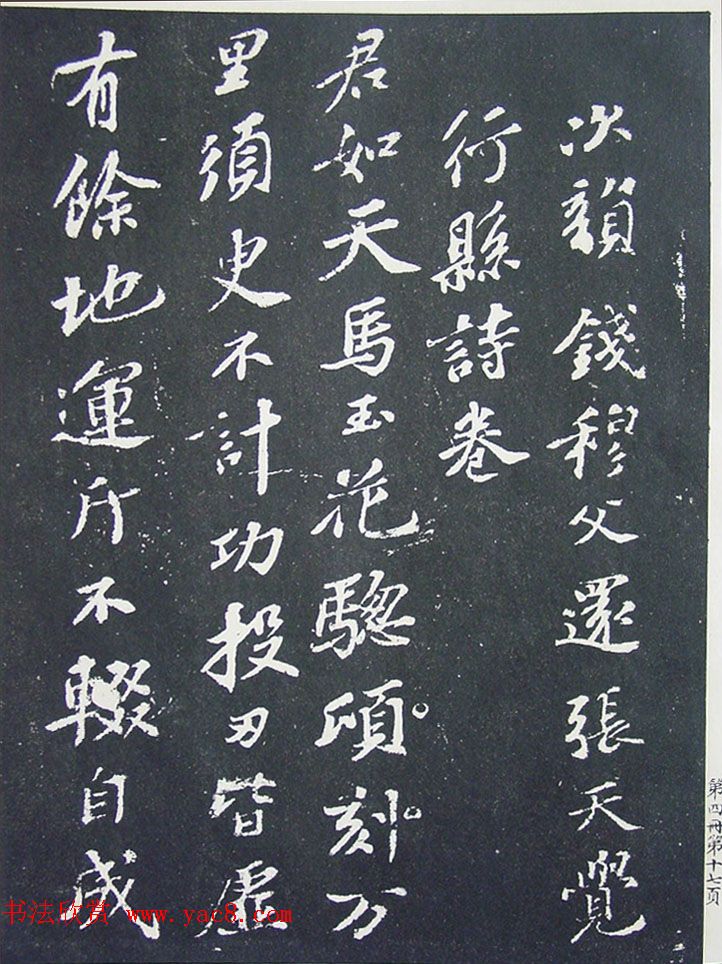 次韻錢穆父還張天覺
行縣詩卷
君如天馬玉花驄頃刻万
里須臾不計功投刃皆虛
有餘地運斤不輟自成
第四冊第十七頁
书法欣赏 www.yac8.com